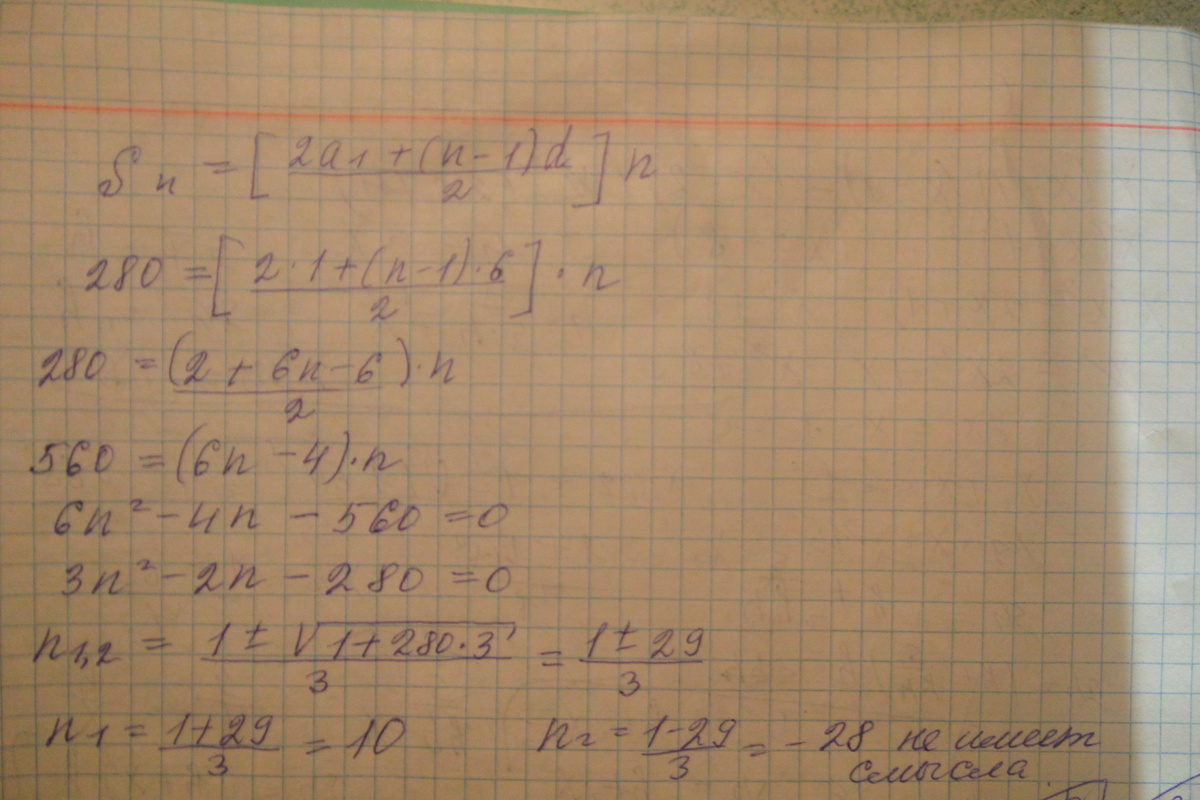 Sn = [(2a1 + (n - 1)d)/2] n
280 = [(2·1 + (n - 1)·6)/2] · n
280 = (2 + 6n - 6)/2 · n
560 = (6n - 4)·n
6n² - 4n - 560 = 0
3n² - 2n - 280 = 0
n1,2 = (1 ± √(1 + 280·3))/3 = (1 ± 29)/3
n1 = (1 + 29)/3 = 10 n2 = (1 - 29)/3 = -28 не имеет
смысла